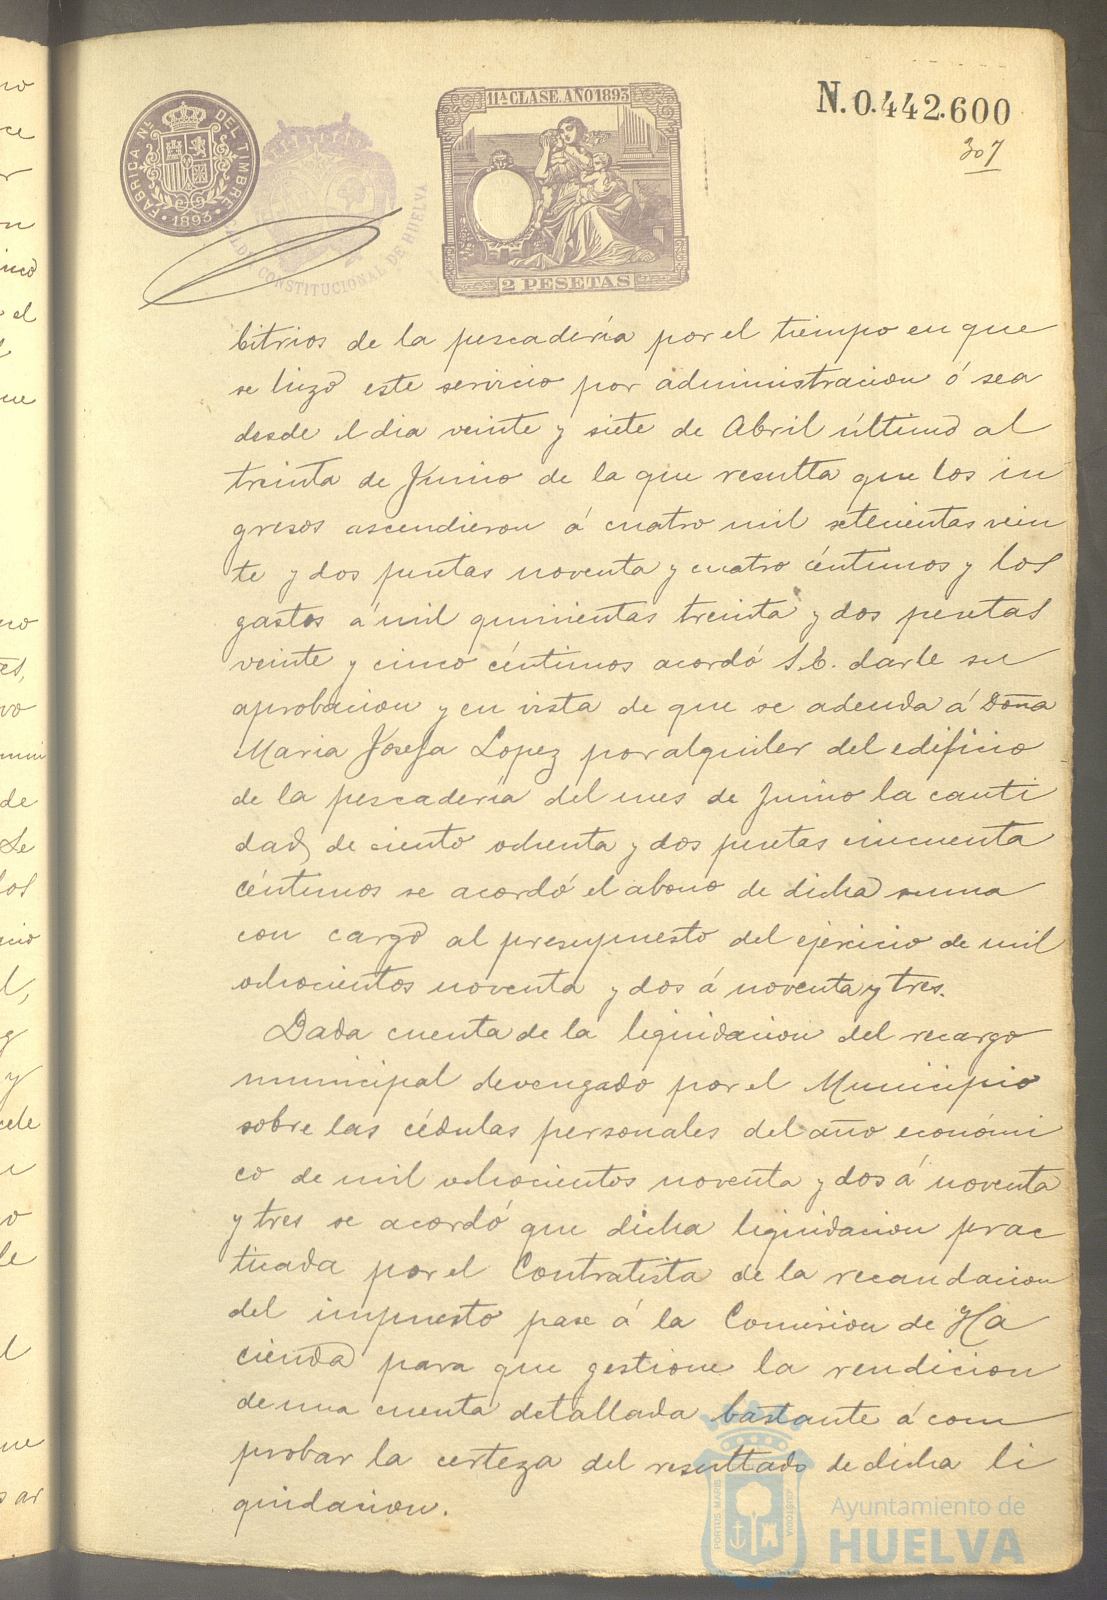 11ª CLASE. AÑO 1893
N. 0.442.600
307
FABRICA Nl. DEL TIMBRE
1893
ALCALDIA CONSTITUCIONAL DE HUELVA
2 PESETAS
bitrios de la pescadería por el tiempo en que
se hizo este servicio por administracion ó sea
desde el dia veinte y siete de Abril último al
treinta de Junio de la que resulta que los in
gresos ascendieron á cuatro mil setecientas vein
te y dos pesetas noventa y cuatro céntimos y los
gastos á mil quinientas treinta y dos pesetas
veinte y cinco céntimos acordó S.E. darle su
aprobacion y en vista de que se adeuda á Doña
Maria Josefa Lopez por alquiler del edificio
de la pescadería del mes de Junio la canti
dad de ciento ochenta y dos pesetas cincuenta
céntimos se acordó el abono de dicha suma
con cargo al presupuesto del ejercicio de mil
ochocientos noventa y dos á noventa y tres.
Dada cuenta de la liquidacion del recargo
municipal devengado por el Municipio
sobre las cédulas personales del año económi
co de mil ochocientos noventa y dos á noventa
y tres se acordó que dicha liquidacion prac
ticada por el Contratista de la recaudacion
del impuesto pase á la Comision de Ha
cienda para que gestione la rendicion
de una cuenta detallada bastante á com
probar la certeza del resultado de dicha li
quidacion.
PORTUS MARIS
CUSTODIA
Ayuntamiento de
HUELVA